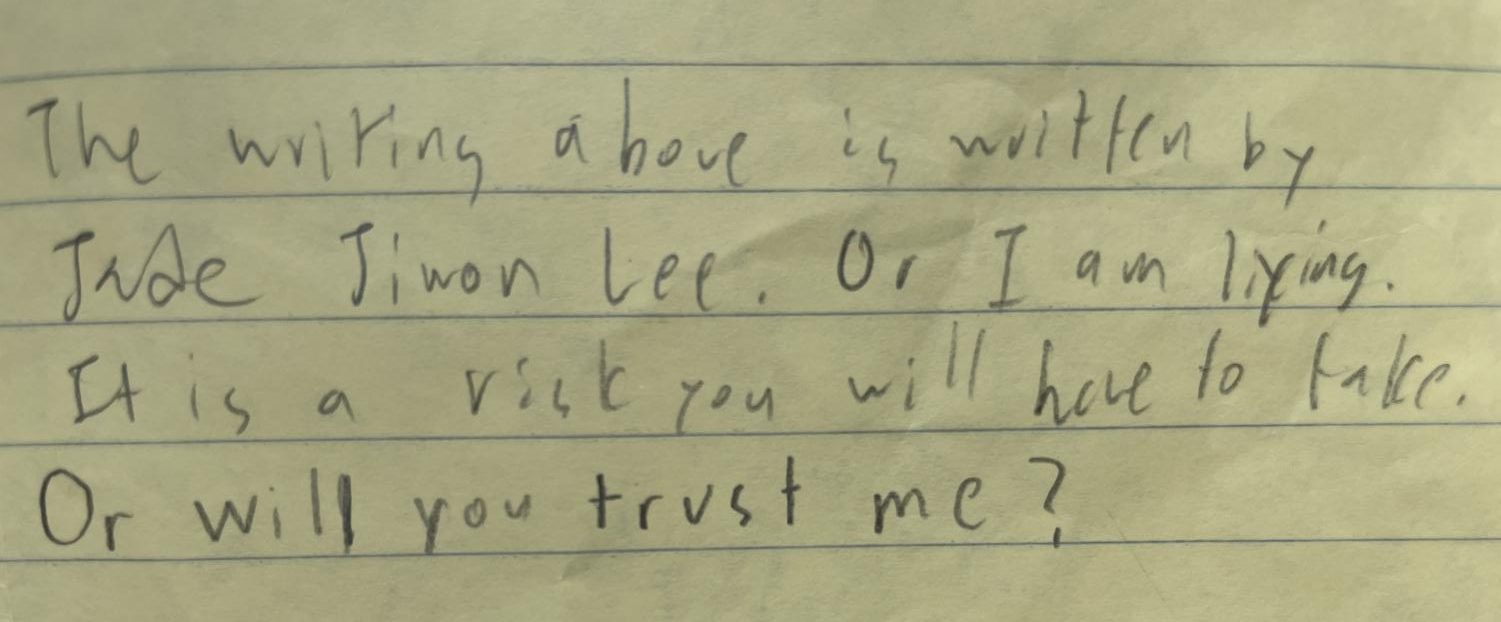 The writing above is written by
Jade Jiwon Lee. Or I am lying.
It is a risk you will have to take.
Or will you trust me?